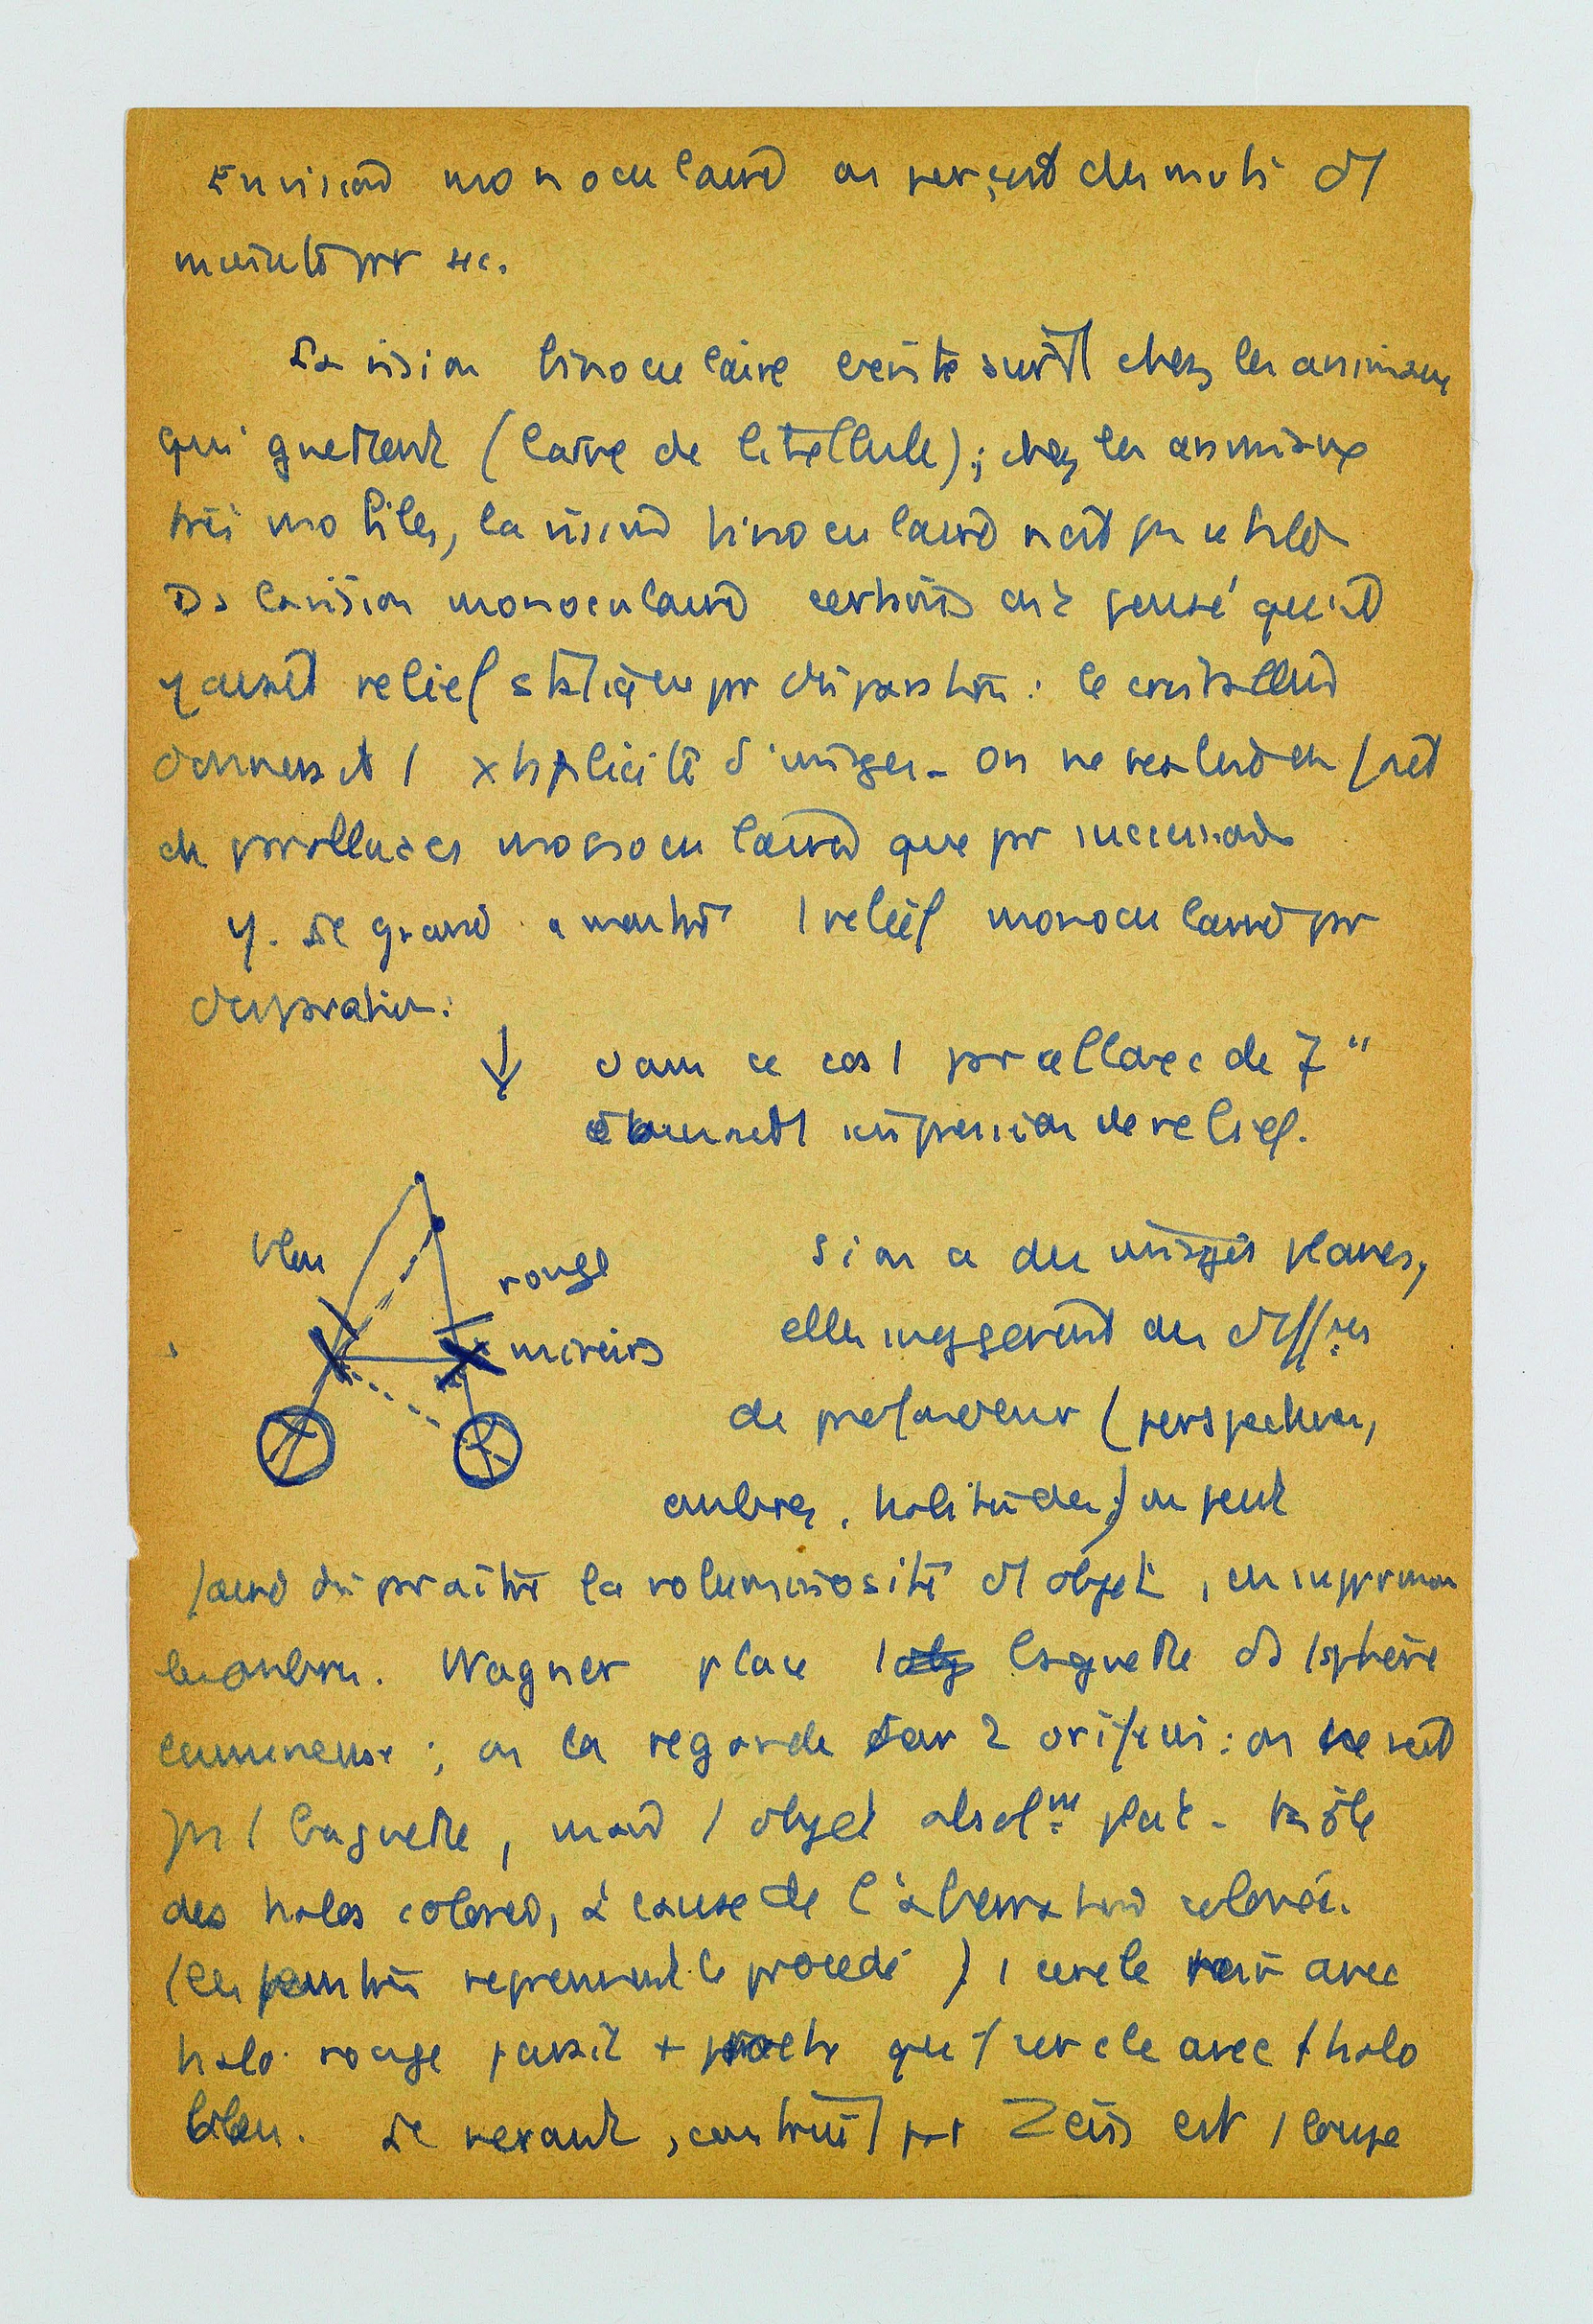 En vision monoculaire on perçoit des
minute par sec.
La vision binoculaire existe surtt chez les animaux
qui guettent (larve de libellule); chez les animaux
très mobiles, la vision binoculaire n'est pas utile
Ds la vision monoculaire certains ont pensé qu'il
y avait relief statique par disparation : le cristallin
donnerait 1 d'images. On ne réalise en fait
de parallaxes monoculaire que par succession
Y. Le grand a montré 1 relief monoculaire par
disparation :
↓ dans ce cas 1 parallaxe de 7"
donnerait 1 impression de relief.
bleu
rouge
miroirs
Si on a des images planes,
elles suggèrent des diff
de profondeur (perspective,
ombres, habitudes) on peut
faire disparaître la voluminosité d'1 objet, en supprimant
les ombres. Wagner place 1 baguette ds 1 sphère
lumineuse ; on la regarde par 2 orifices : on ne voit
pas 1 baguette, mais 1 objet absolmt plat. Rôle
des halos colorés, à cause de l'aberration colorée.
(les peintres reprennent le procédé) 1 cercle noir avec
halo rouge paraît + proche que 1 cercle avec 1 halo
bleu. Le verant, construit par Zeiss est 1 loupe